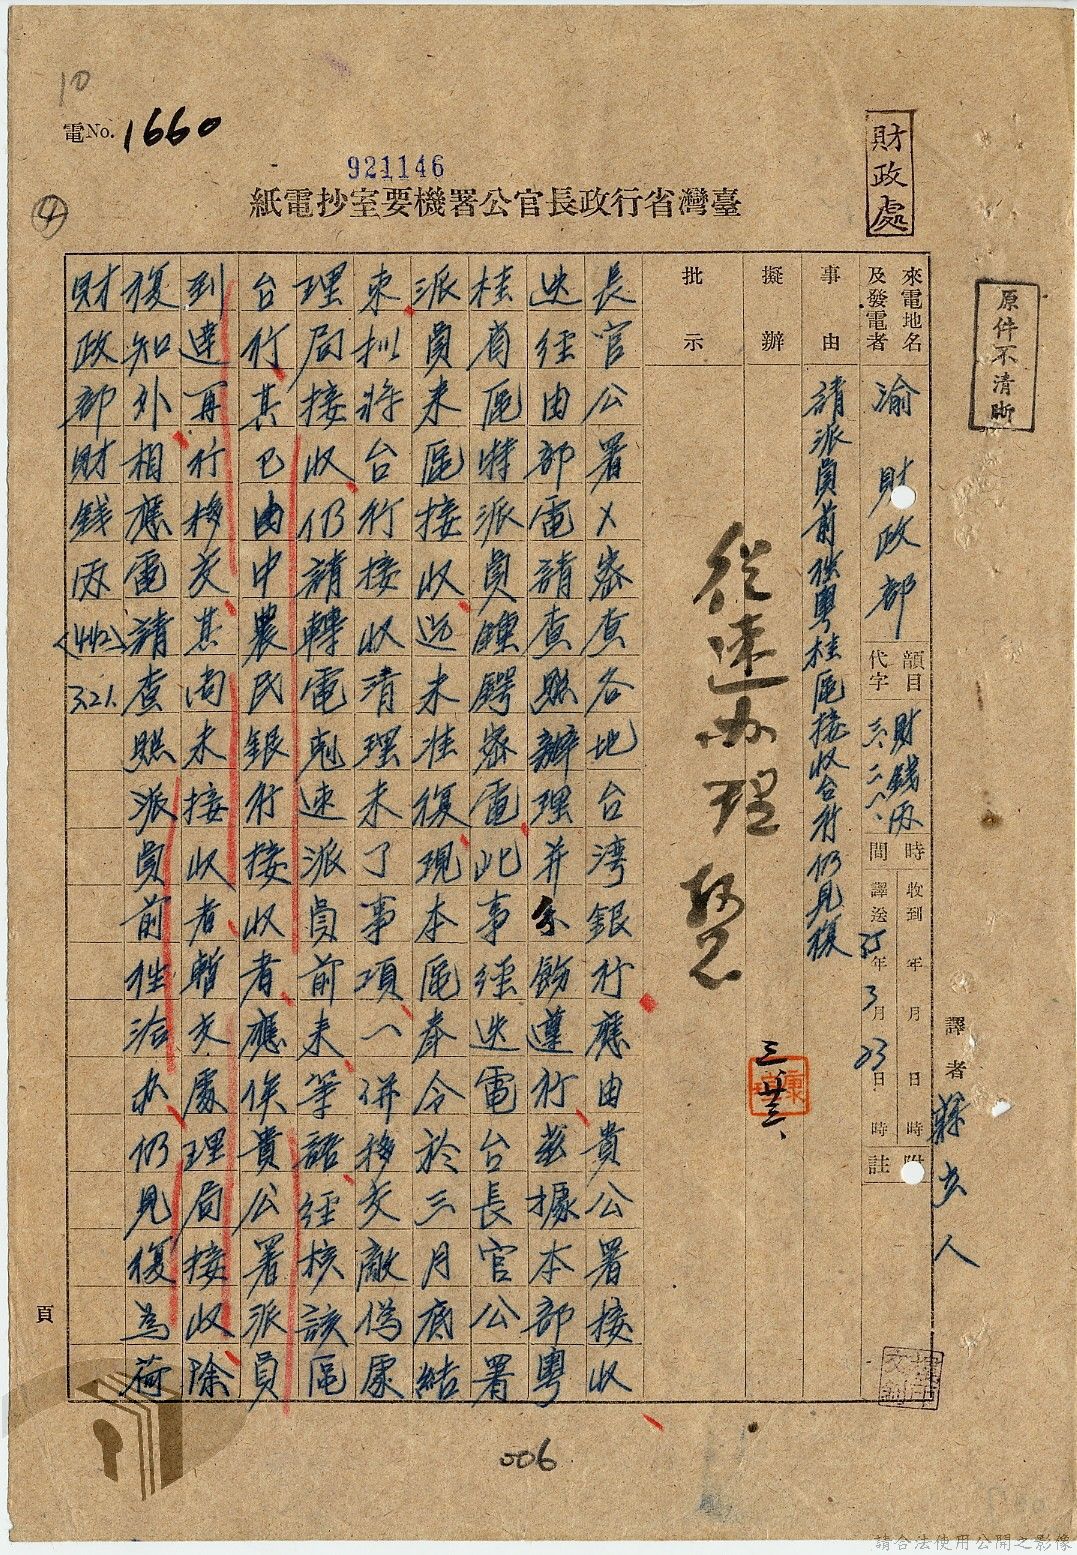 10
電No. 1660
921146
臺灣省行政長官公署機要室抄電紙
財政處
④
原件不清晰
來電地名及發電者
渝財政部
韻目代字
財錢丙
三、二八、
時間
收到 年 月 日 時
譯送 35年3月23日 時
附註
譯者 蘇 人
事由
請派員前往粵桂區接收台行仍見復
擬辦
三、廿三、
批示
從速办理
長官公署乂密查各地台湾銀行應由貴公署接收
迭經由部電請查照辦理并分飭遵行玆據本部粵
桂省區特派員 密電此事經迭電台長官公署
派員來區接收迄未准復現本區奉令於三月底結
束拟將台行接收清理未了事項一併移交敵偽處
理局接收仍請轉電剋速派員前來等語經核該區
台行其已由中農民銀行接收者應俟貴公署派員
到達再行移交其尚未接收者暫交處理局接收除
復知外相應電請查照派員前往洽办仍見復為荷
財政部財錢丙(442)321.
頁
006
請合法使用公開之影像